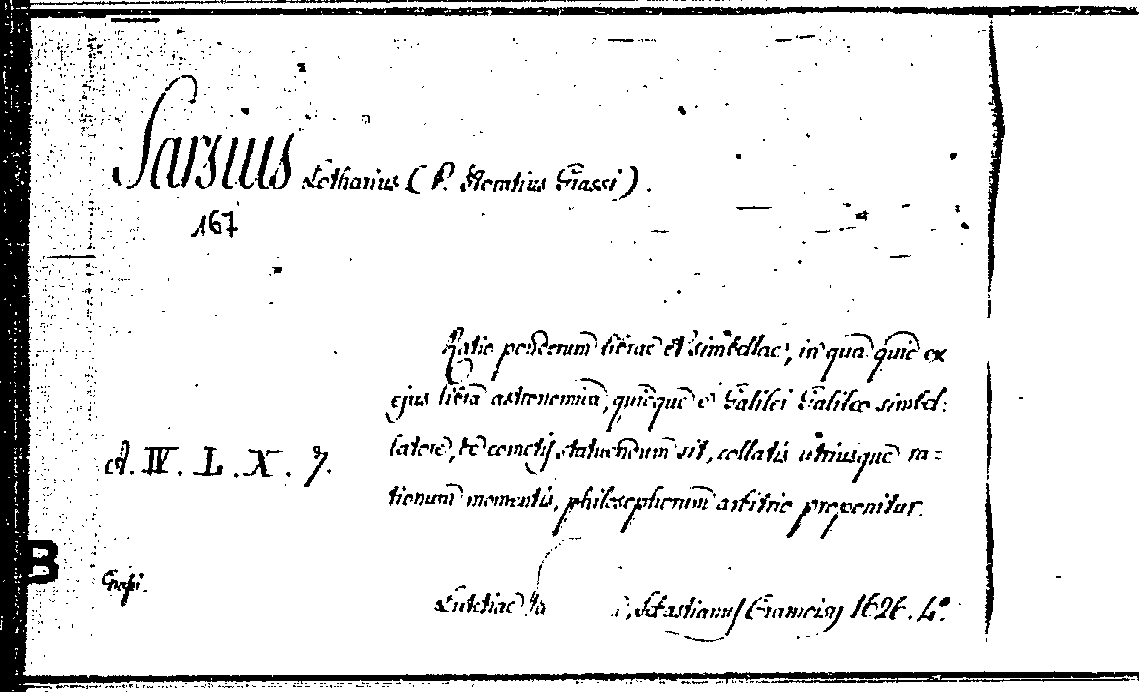 Sarsius Lotharius (P. Horatius Grassi).
167
Ratio ponderum librae et simbellae, in qua quid ex
ejus libra astronomica, quidque e Galilei Galileo simbel:
latore, de cometis statuendum sit, collatis utriusque ra=
tionum momentis, philosophorum arbitrio proponitur.
A. IV. L. X. 7.
B
Grassi.
Lutetiae Sebastianus Cramoisy 1626. 4º.